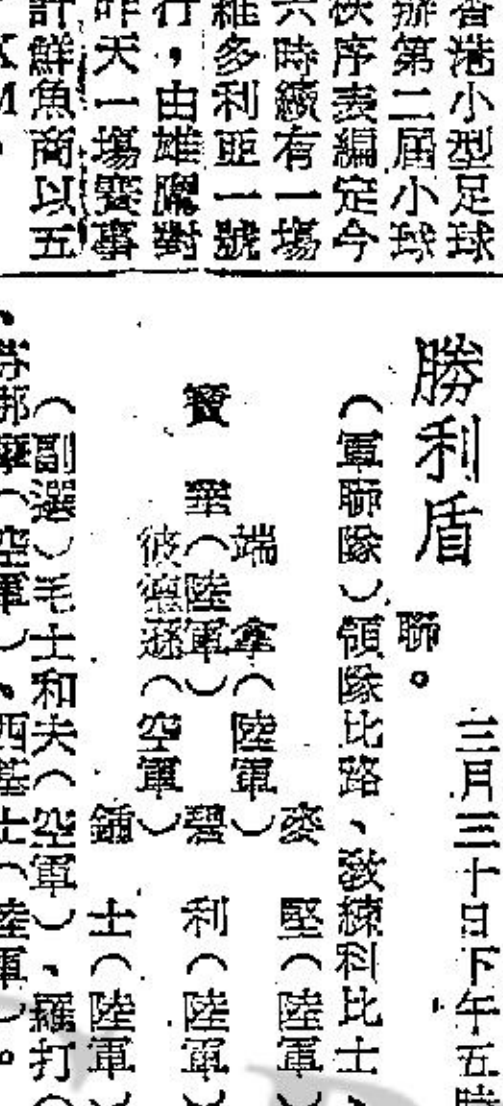 香港小型足球
辦第二屆小球
秩序表編定今
六時續有一場
維多利亞一號
行，由雄鷹對
昨天一場賽事
計鮮魚商以五
勝利盾
三月三十日下午五時
聯。
（軍聯隊）領隊比路、敎練科比士、
麥堅（陸軍）
端拿（陸軍）
碧利（陸軍）
寶華（陸軍）
彼德遜（空軍）
鍾士（陸軍）
（副選）毛士和夫（空軍）、羅打（
（空軍）、西基士（陸軍）。